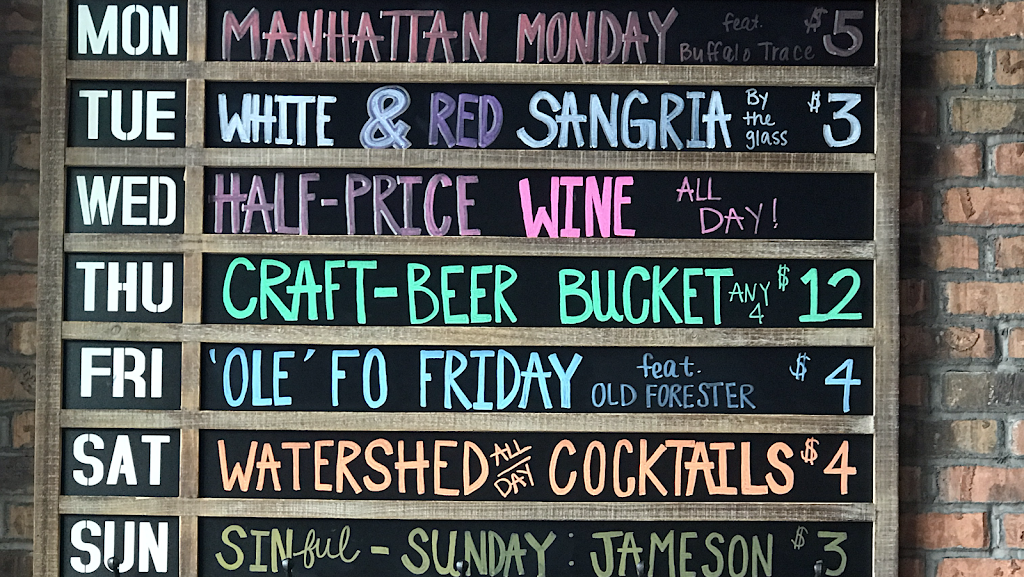 MON MANHATTAN MONDAY feat. Buffalo Trace $5
TUE WHITE & RED SANGRIA By the glass $3
WED HALF-PRICE WINE ALL DAY!
THU CRAFT-BEER BUCKET ANY 4 $12
FRI 'OLE' FO FRIDAY feat. OLD FORESTER $4
SAT WATERSHED ALL DAY COCKTAILS $4
SUN SINful - SUNDAY : JAMESON $3